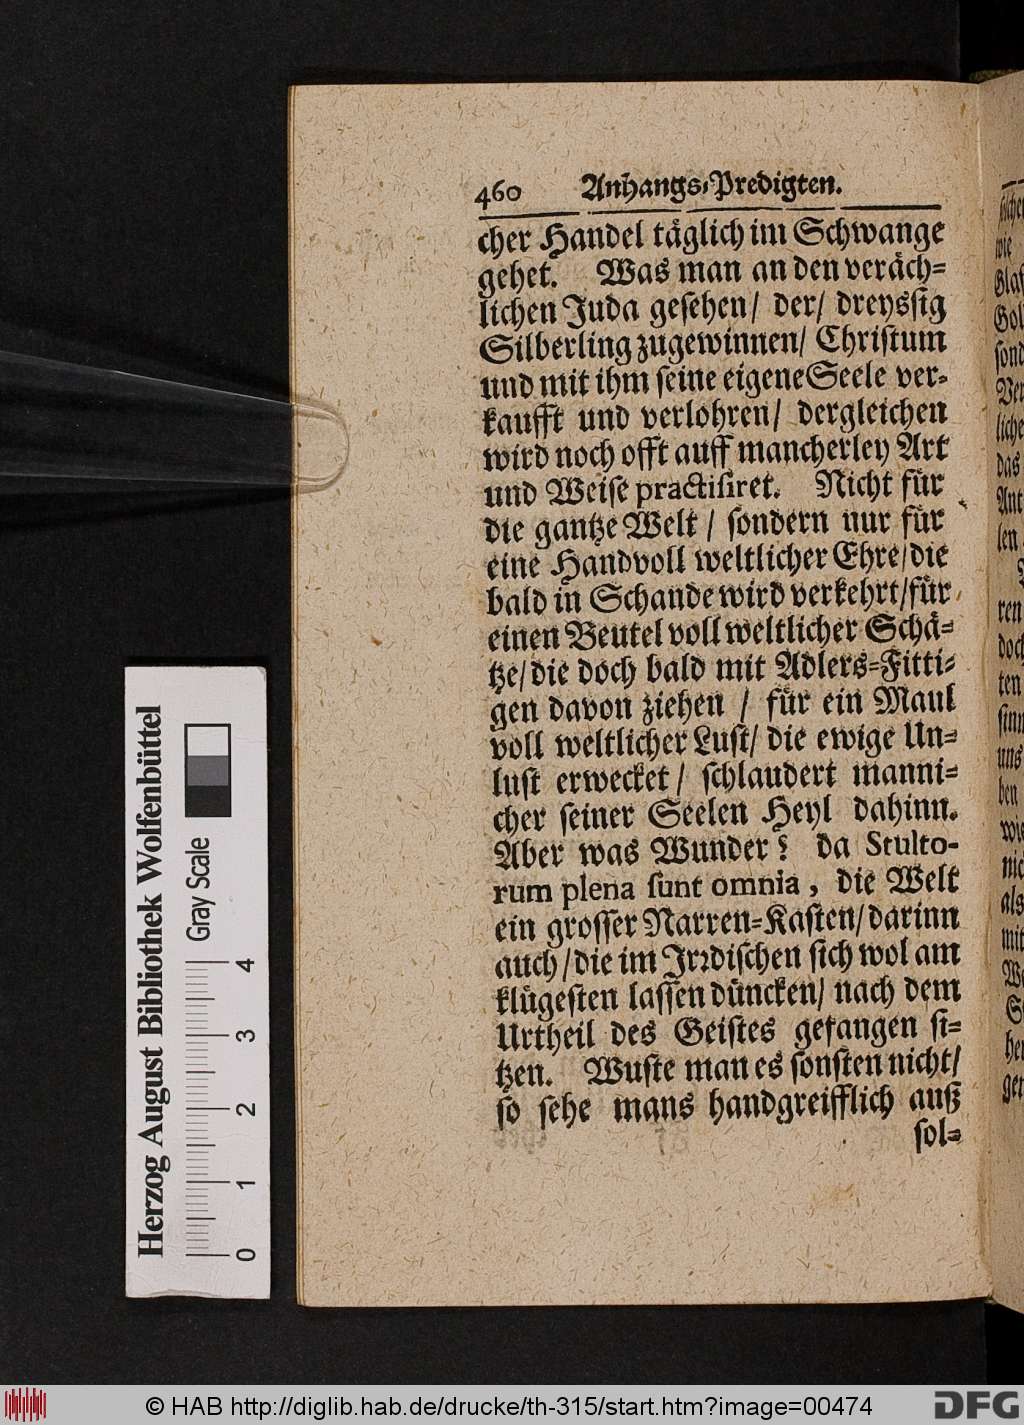 460 Anhangs-Predigten.
cher Handel täglich im Schwange
gehet. Was man an den veräch-
lichen Juda gesehen/ der/ dreyssig
Silberling zugewinnen/ Christum
und mit ihm seine eigene Seele ver-
kaufft und verlohren/ dergleichen
wird noch offt auff mancherley Art
und Weise practisiret. Nicht für
die gantze Welt / sondern nur für
eine Handvoll weltlicher Ehre/die
bald in Schande wird verkehrt/für
einen Beutel voll weltlicher Schä-
tze/die doch bald mit Adlers-Fitti-
gen davon ziehen / für ein Maul
voll weltlicher Lust/ die ewige Un-
lust erwecket/ schlaudert manni-
cher seiner Seelen Heyl dahinn.
Aber was Wunder? da Stulto-
rum plena sunt omnia, die Welt
ein grosser Narren-Kasten/darinn
auch/die im Irrdischen sich wol am
klügesten lassen düncken/ nach dem
Urtheil des Geistes gefangen si-
tzen. Wuste man es sonsten nicht/
so sehe mans handgreifflich auß
sol-
Herzog August Bibliothek Wolfenbüttel
Gray Scale
0 1 2 3 4
© HAB http://diglib.hab.de/drucke/th-315/start.htm?image=00474
DFG